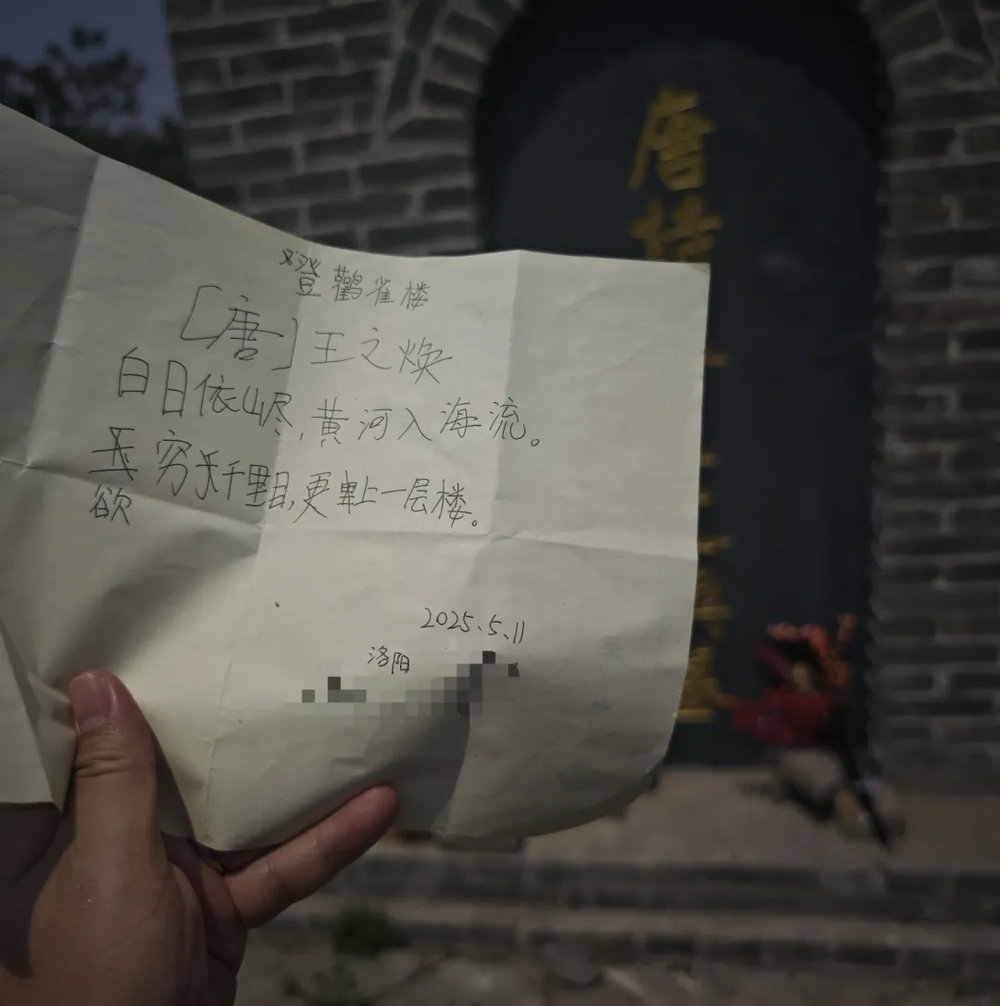 登鸛雀楼
[唐]王之焕
白日依山尽,黄河入海流。
穷千里目,更上一层楼。
欲
2025.5.11
洛阳
唐